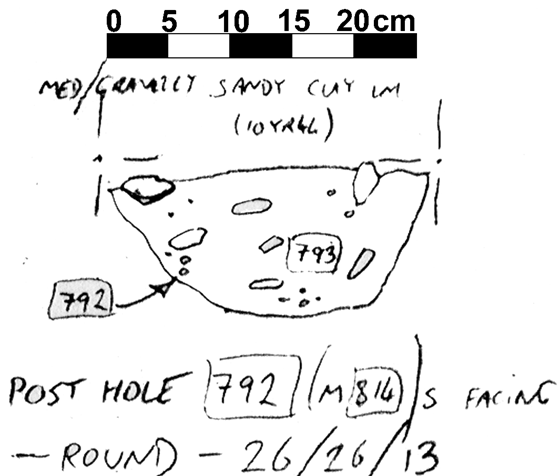 0 5 10 15 20 cm
MED/GRAVELLY SANDY CLAY LM
(10YR44)
793
792
POST HOLE 792 (M 814) S FACING
- ROUND - 26/26/13